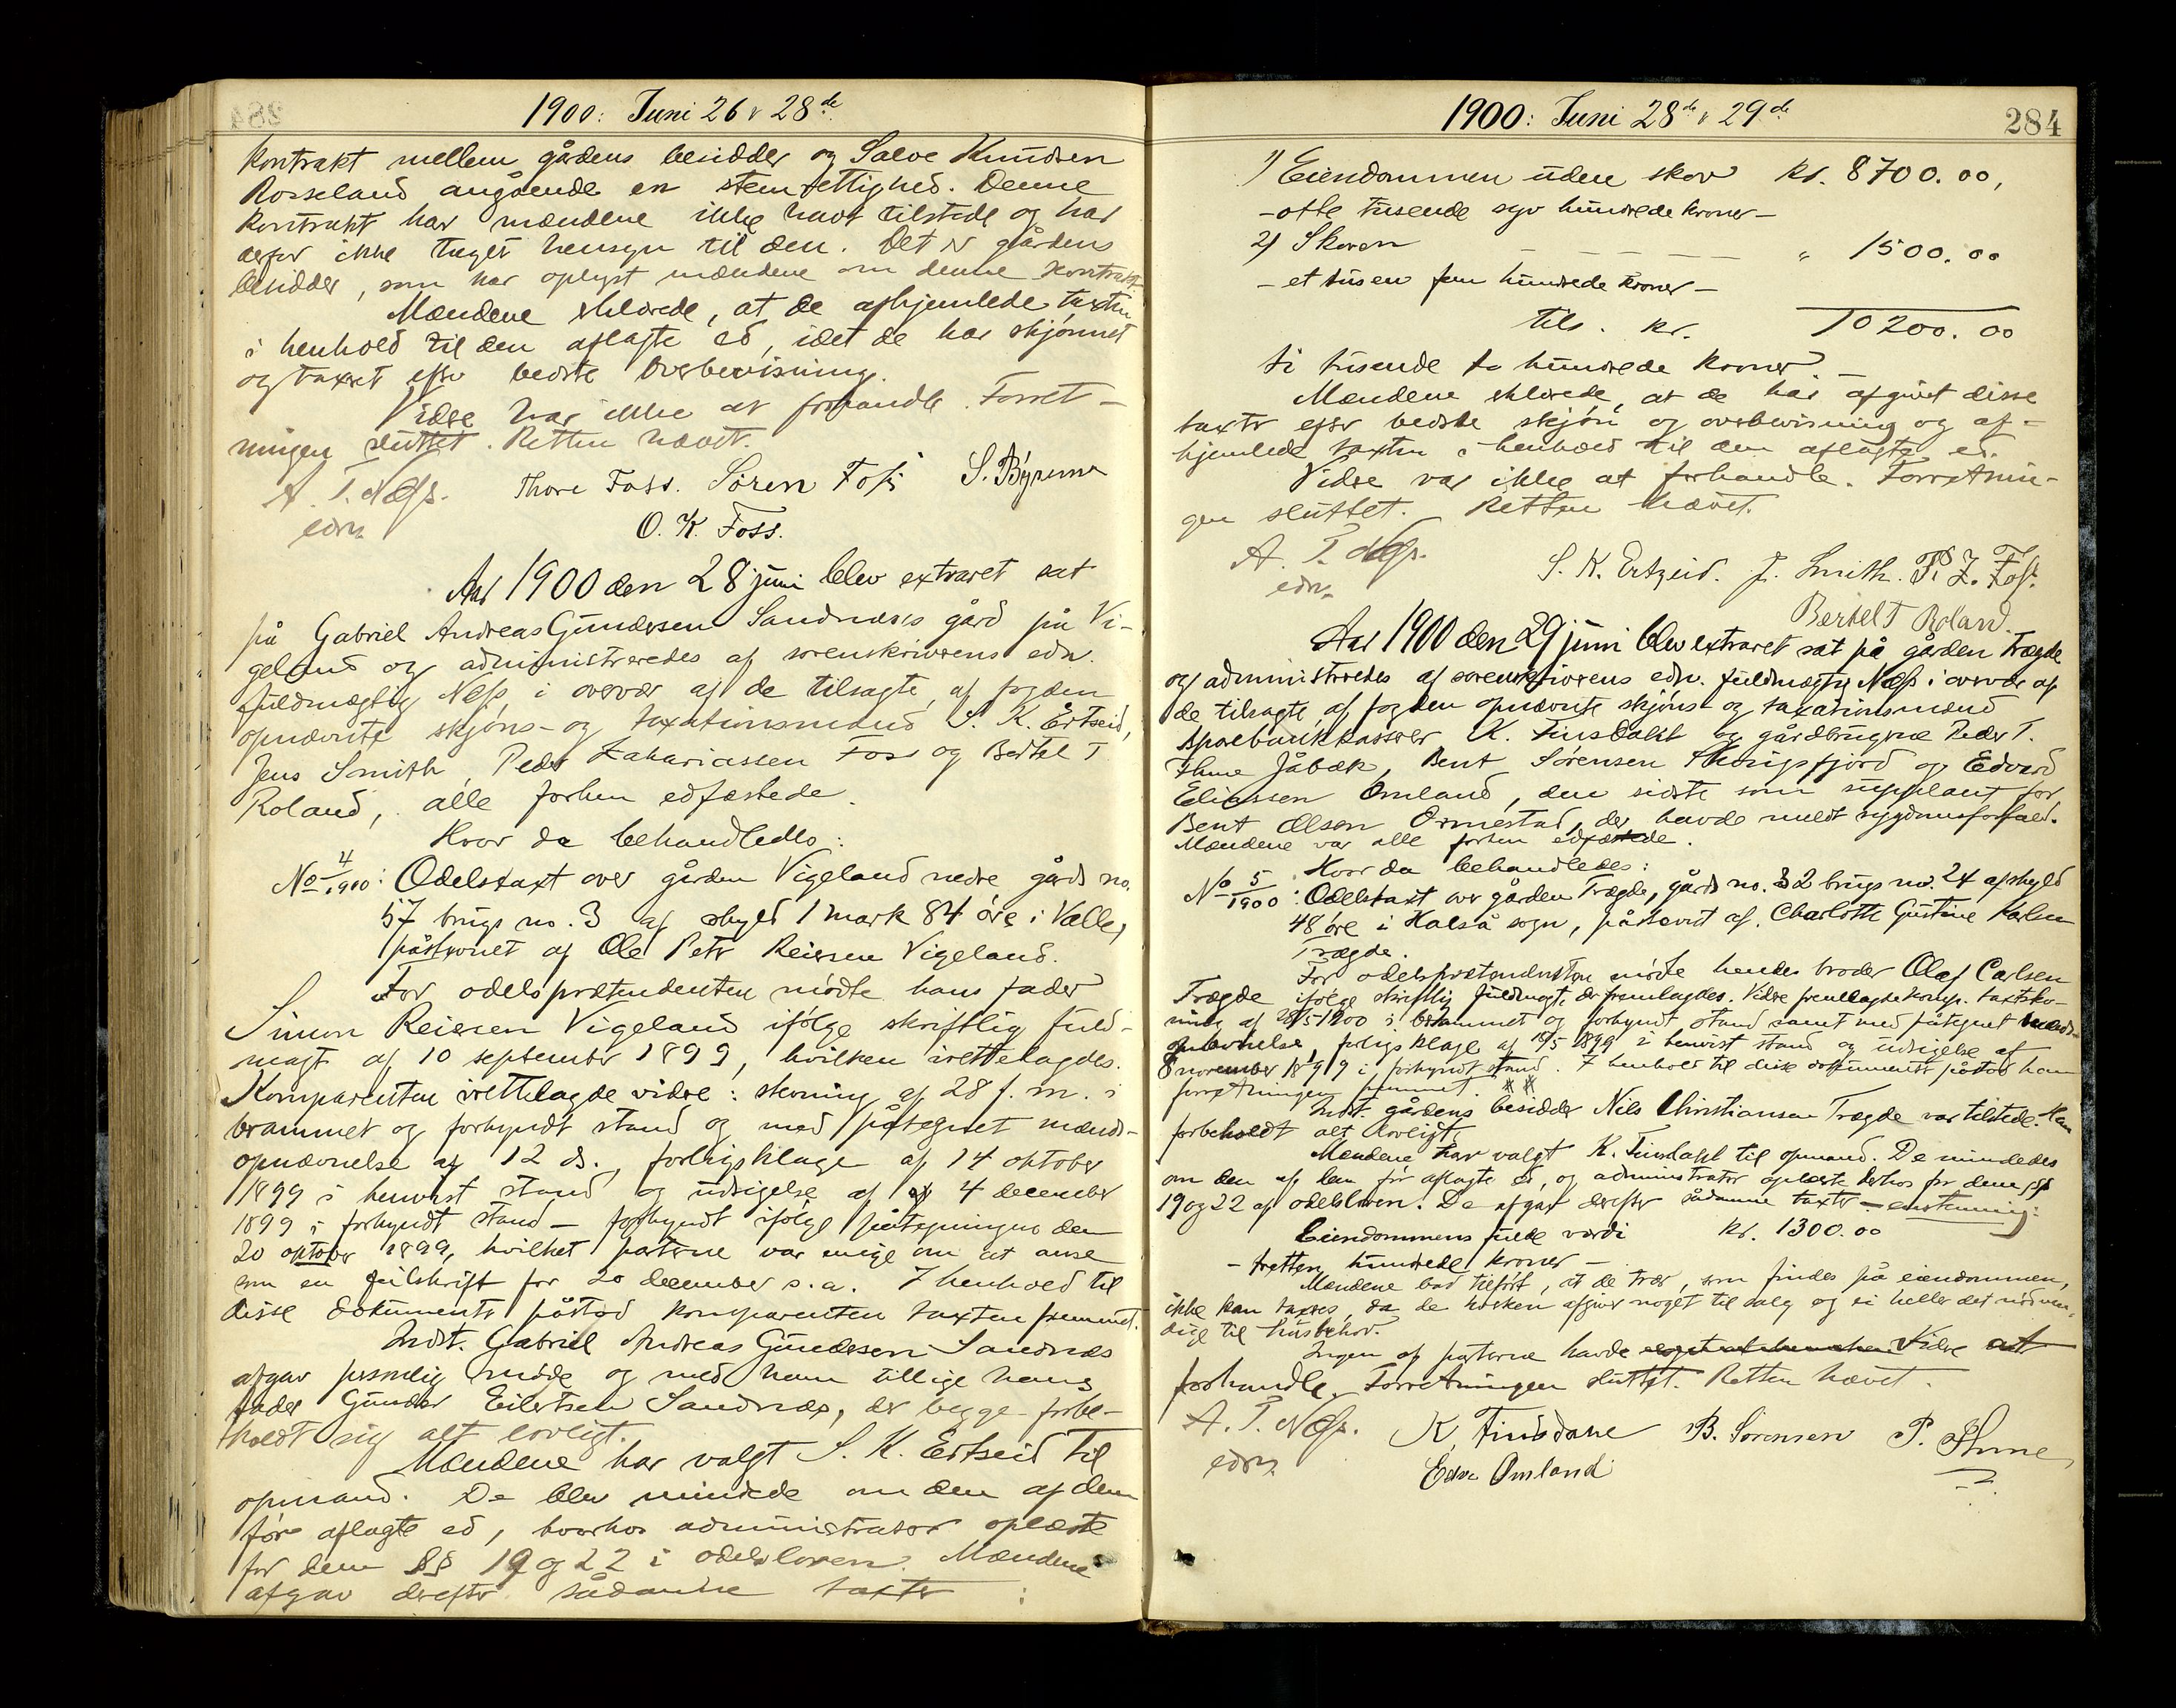 1900: Juni 26 & 28de
kontrakt mellem gårdens besidder og Salve Knudsen
Rosseland angående en stemrettighed. Denne
kontrakt har mændene ikke havt tilstede og har
derfor ikke taget hensyn til den. Det er gårdens
besidder, som har oplyst mændene om denne kontrakt.
Mændene erklærede, at de afhjemlede taxten
i henhold til den aflagte ed, idet de har skjønnet
og taxeret efter bedste overbevisning.
Videre var ikke at forhandle. Forret-
ningen sluttet. Retten hævet.
A. T. Næss. Thore Foss. Sören Foss S. Byremo
edsv.
O. K. Foss.
Aar 1900 den 28 juni blev extraret sat
på Gabriel Andreas Gundersen Sandnæs's gård på Vi-
geland og administreredes af sorenskriverens edsv.
fuldmægtig Næss i overvær af de tilsagte, af fogden
opnævnte skjøns- og taxationsmænd S. K. Ertseid,
Jens Smith, Peder Zakariassen Foss og Bertel T
Roland, alle forhen edfæstede.
Hvor da behandledes:
No 4/1900: Odelstaxt over gården Vigeland nedre gårds no.
57 brugs no. 3 af skyld 1 mark 84 øre i Valle,
påstevnet af Ole Peter Reiersen Vigeland.
For odelsprætendenten mødte hans fader
Simon Reiersen Vigeland ifølge skriftlig fuld-
magt af 10 september 1899, hvilken irettelagdes.
Komparenten irettelagde videre: stevning af 28 f. m. i
berammet og forkyndt stand og med påtegnet mænds-
opnævnelse af 12 ds., forligsklage af 14 oktober
1899 i henvist stand og udsigelse af 4 december
1899 i forkyndt stand - forkyndt ifølge påtegningen den
20 oktober 1899, hvilket parterne var enige om at anse
som en feilskrift for 20 december s. a. I henhold til
disse dokumenter påstod komparenten taxten fremmet.
Indst. Gabriel Andreas Gundersen Sandnæs
afgav personlig møde og med ham tillige hans
fader Gunder Eilertsen Sandnæs, der begge forbe-
holdt sig alt lovligt.
Mændene har valgt S. K. Ertseid til
opmand. De blev mindede om den af dem
før aflagte ed, hvorhos administrator oplæste
for dem §§ 19 og 22 i odelsloven. Mændene
afgav derefter sådanne taxter:
1900: Juni 28de & 29de
284
1) Eiendommen uden skov kr. 8700.00,
- otte tusende syv hundrede kroner -
2) Skoven " 1500.00
- et tusen fem hundrede kroner -
tils. kr. 10200.00
ti tusende to hundrede kroner
Mændene erklærede, at de har afgivet disse
taxter efter bedste skjøn og overbevisning og af-
hjemlede taxten i henhold til den aflagte ed.
Videre var ikke at forhandle. Forretnin-
gen sluttet. Retten hævet.
A. T. Næss.
edsv.
S. K. Ertzeid. J. Smith. P. Z. Foss.
Bertel T Roland.
Aar 1900 den 29 juni blev extraret sat på gården Trægde
og administreredes af sorenskriverens edsv. fuldmægtig Næss i overvær af
de tilsagte, af fogden opnævnte skjøns- og taxationsmænd
sparebankkasserer K. Finsdahl og gårdbrugerne Peder T.
Ihme Jåbæk, Bent Sørensen Skogsfjord og Edvard
Eliassen Omland, den sidste som supplant for
Bent Olsen Ormestad, der havde meldt sygdomsforfald.
Mændene var alle forhen edfæstede.
Hvor da behandledes:
No 5/1900: Odelstaxt over gården Trægde, gårds no. 32 brugs no. 24 af skyld
48 øre i Halså sogn, påstevnt af Charlotte Gustine Karlsen
Trægde.
For odelsprætendenten mødte hendes broder Olaf Carlsen
Trægde ifølge skriftlig fuldmagt, der fremlagdes. Videre fremlagde komp. taxtstev-
ning af 28/5 1900 i berammet og forkyndt stand samt med påtegnet mænds-
opnævnelse, forligsklage af 19/5 1899 i henvist stand og udsigelse af
8 november 1899 i forkyndt stand. I henhold til disse dokumenter påstod han
forretningen fremmet.
Indst. gårdens besidder Nils Christiansen Trægde var tilstede. Han
forbeholdt alt lovligt.
Mændene har valgt K. Finsdahl til opmand. De mindedes
om den af dem før aflagte ed, og administrator oplæste derhos for dem §§
19 og 22 af odelsloven. De afgav derefter sådanne taxter - enstemmig:
Eiendommens fulde værdi kr. 1300.00
- tretten hundrede kroner -
Mændene bad tilført, at de trær, som findes på eiendommen,
ikke kan taxeres, da de hverken afgiver noget til salg og ei heller det nødven-
dige til husbehov.
Ingen af parterne havde videre at
forhandle. Forretningen sluttet. Retten hævet.
A. T. Næss. K. Finsdahl B. Sørensen P. Ihme
edsv. Edv. Omland